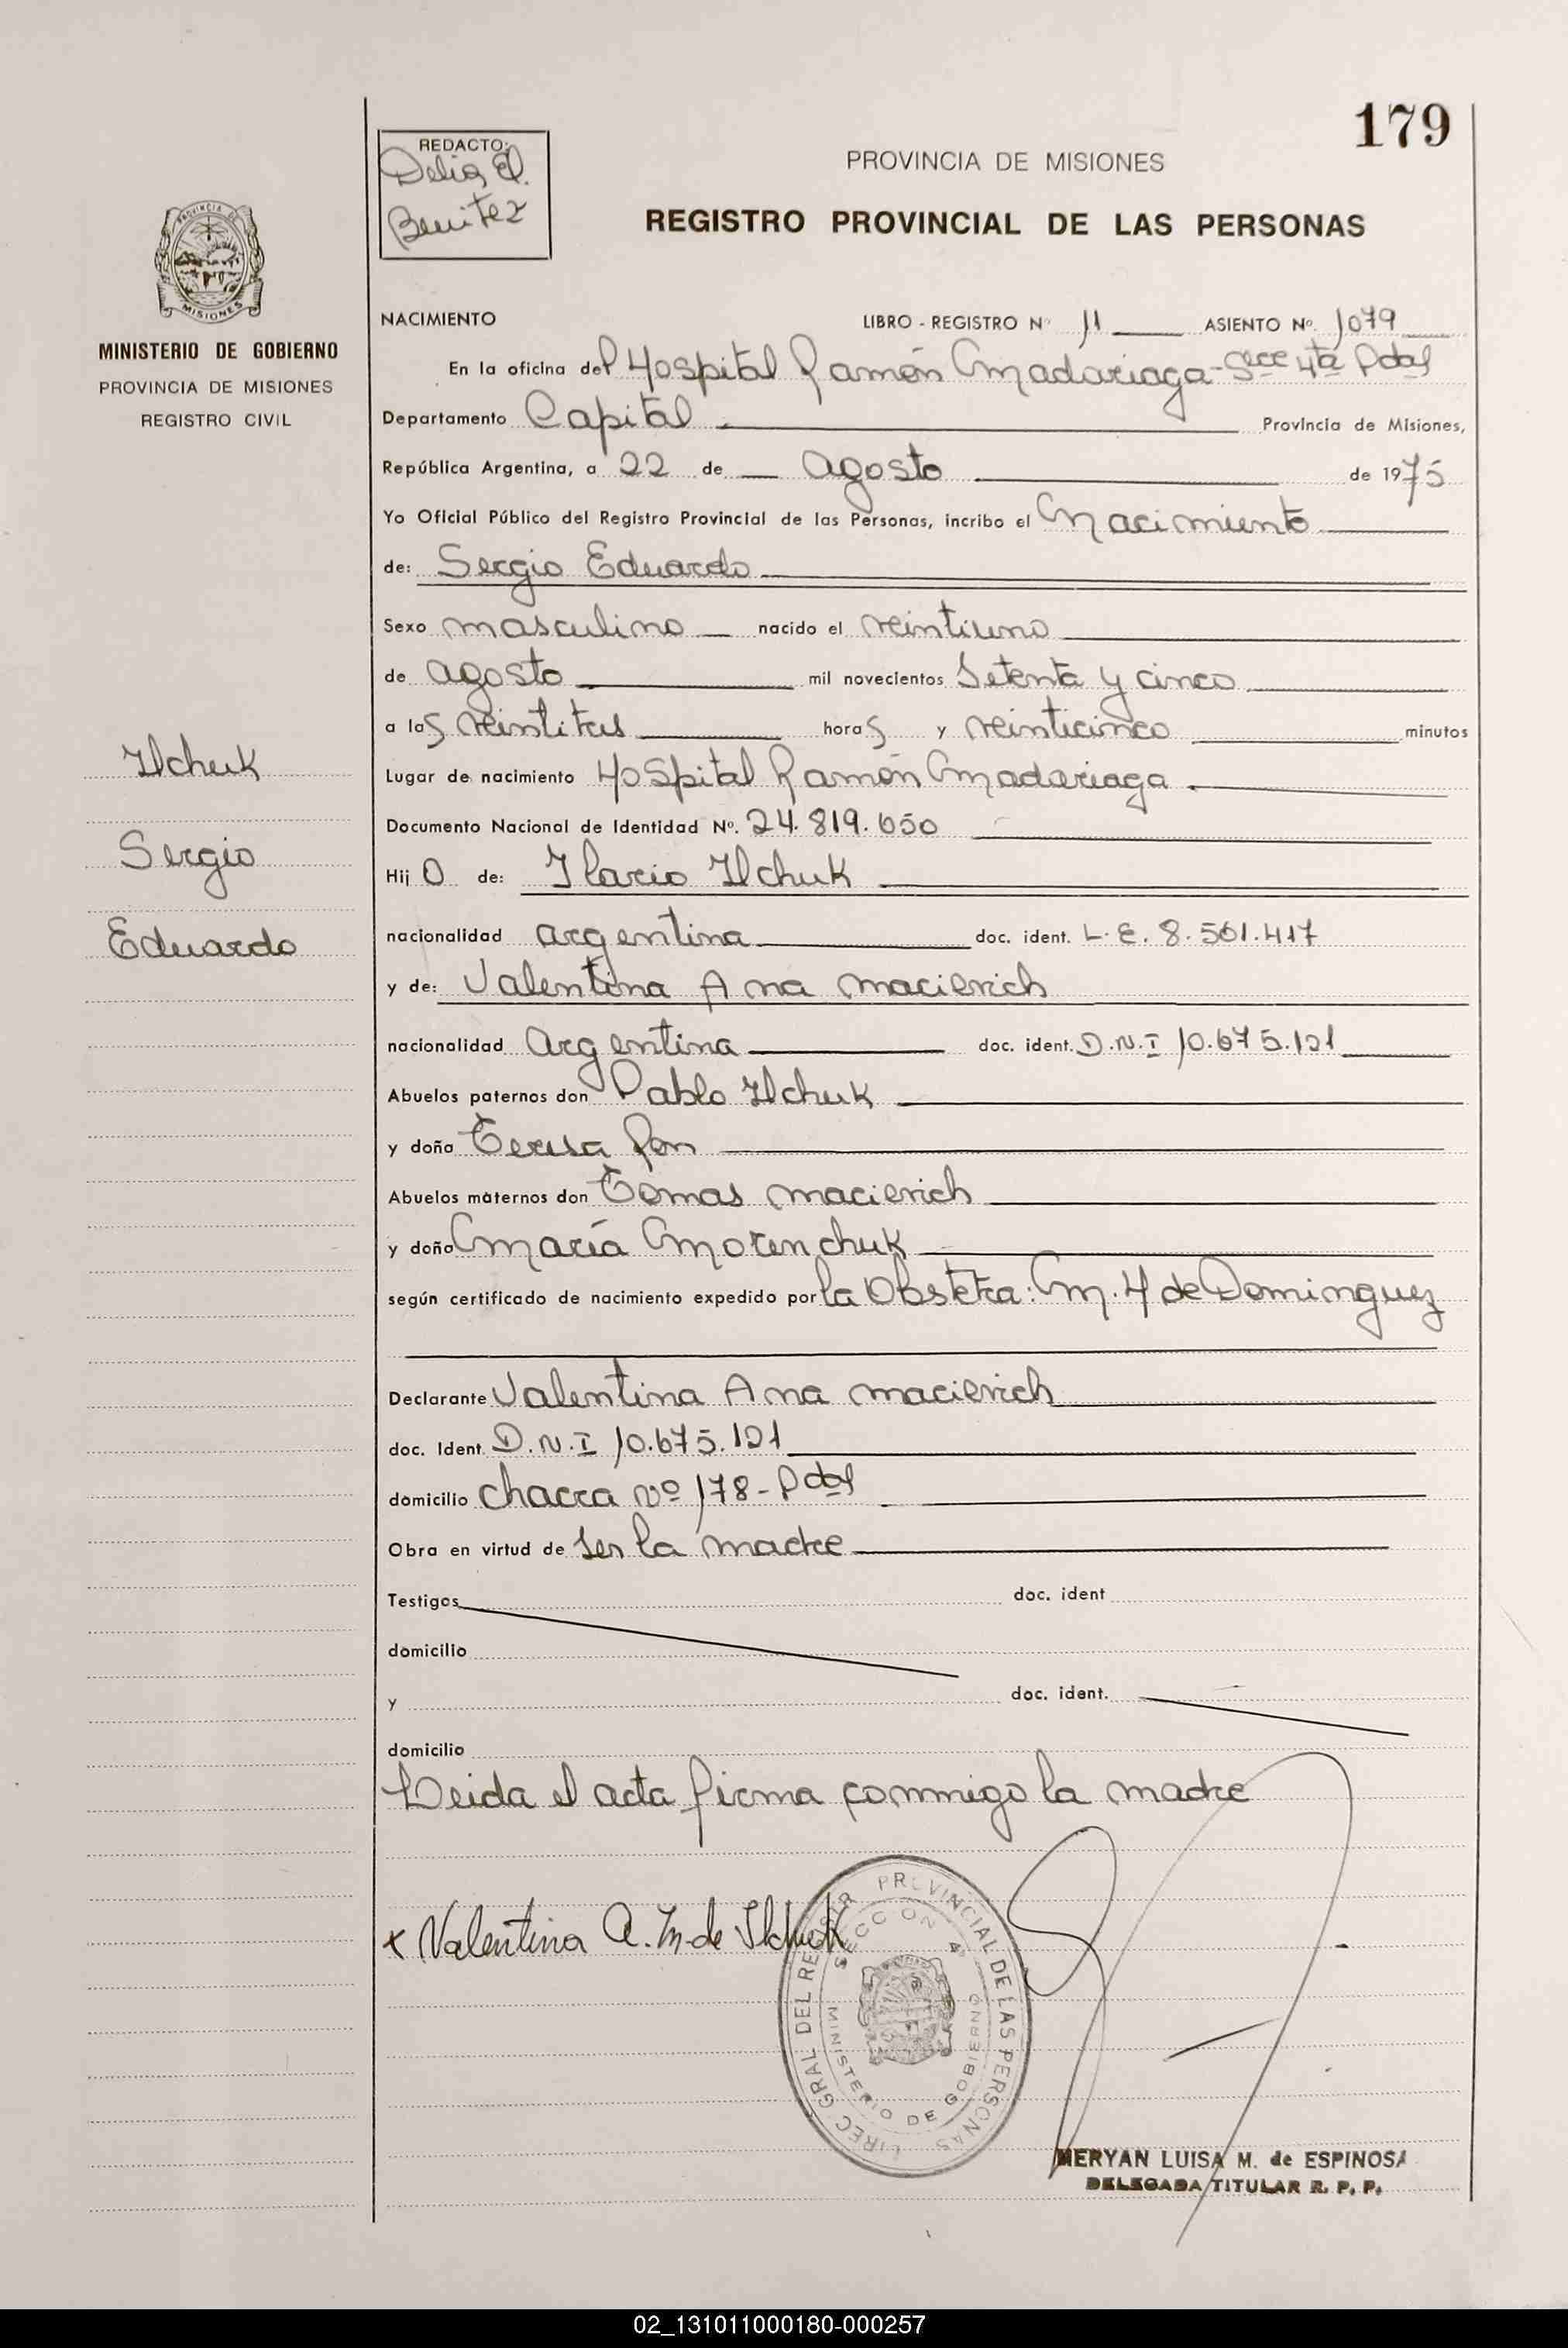 179
REDACTO:
Delia E.
Benitez
PROVINCIA DE MISIONES
REGISTRO PROVINCIAL DE LAS PERSONAS
PROVINCIA DE
MISIONES
MINISTERIO DE GOBIERNO
PROVINCIA DE MISIONES
REGISTRO CIVIL
NACIMIENTO LIBRO - REGISTRO Nº 11 ASIENTO Nº. 1079
En la oficina del Hospital Ramón Madariaga - Secc 4ta Pdas
Departamento Capital Provincia de Misiones,
República Argentina, a 22 de agosto de 1975
Yo Oficial Público del Registro Provincial de las Personas, incribo el Nacimiento
de: Sergio Eduardo
Sexo masculino nacido el veintiuno
de agosto mil novecientos Setenta y cinco
a las veintitres horas y veinticinco minutos
Lugar de nacimiento Hospital Ramón Madariaga.
Documento Nacional de Identidad Nº. 24.819.650
Hijo de: Ilario Ilchuk
nacionalidad argentina doc. ident. L.E. 8.501.417
y de: Valentina Ana macievich
nacionalidad argentina doc. ident. D.N.I 10.675.121
Abuelos paternos don Pablo Ilchuk
y doña Teresa
Abuelos maternos don Tomas macievich
y doña María Motenchuk
según certificado de nacimiento expedido por la Obstetra: M. H de Dominguez
Declarante Valentina Ana macievich
doc. Ident. D.N.I 10.675.121
domicilio chacra nº 178 - Pdas
Obra en virtud de ser la madre
Testigos doc. ident
domicilio
y doc. ident.
domicilio
Leida el acta firma conmigo la madre
x Valentina A. M. de Ilchuk
Ilchuk
Sergio
Eduardo
DIREC GRAL DEL REGISTR PROVINCIAL DE LAS PERSONAS
SECCION 4ª
MINISTERIO DE GOBIERNO
MERYAN LUISA M. de ESPINOSA
DELEGADA TITULAR R. P. P.
02_131011000180-000257